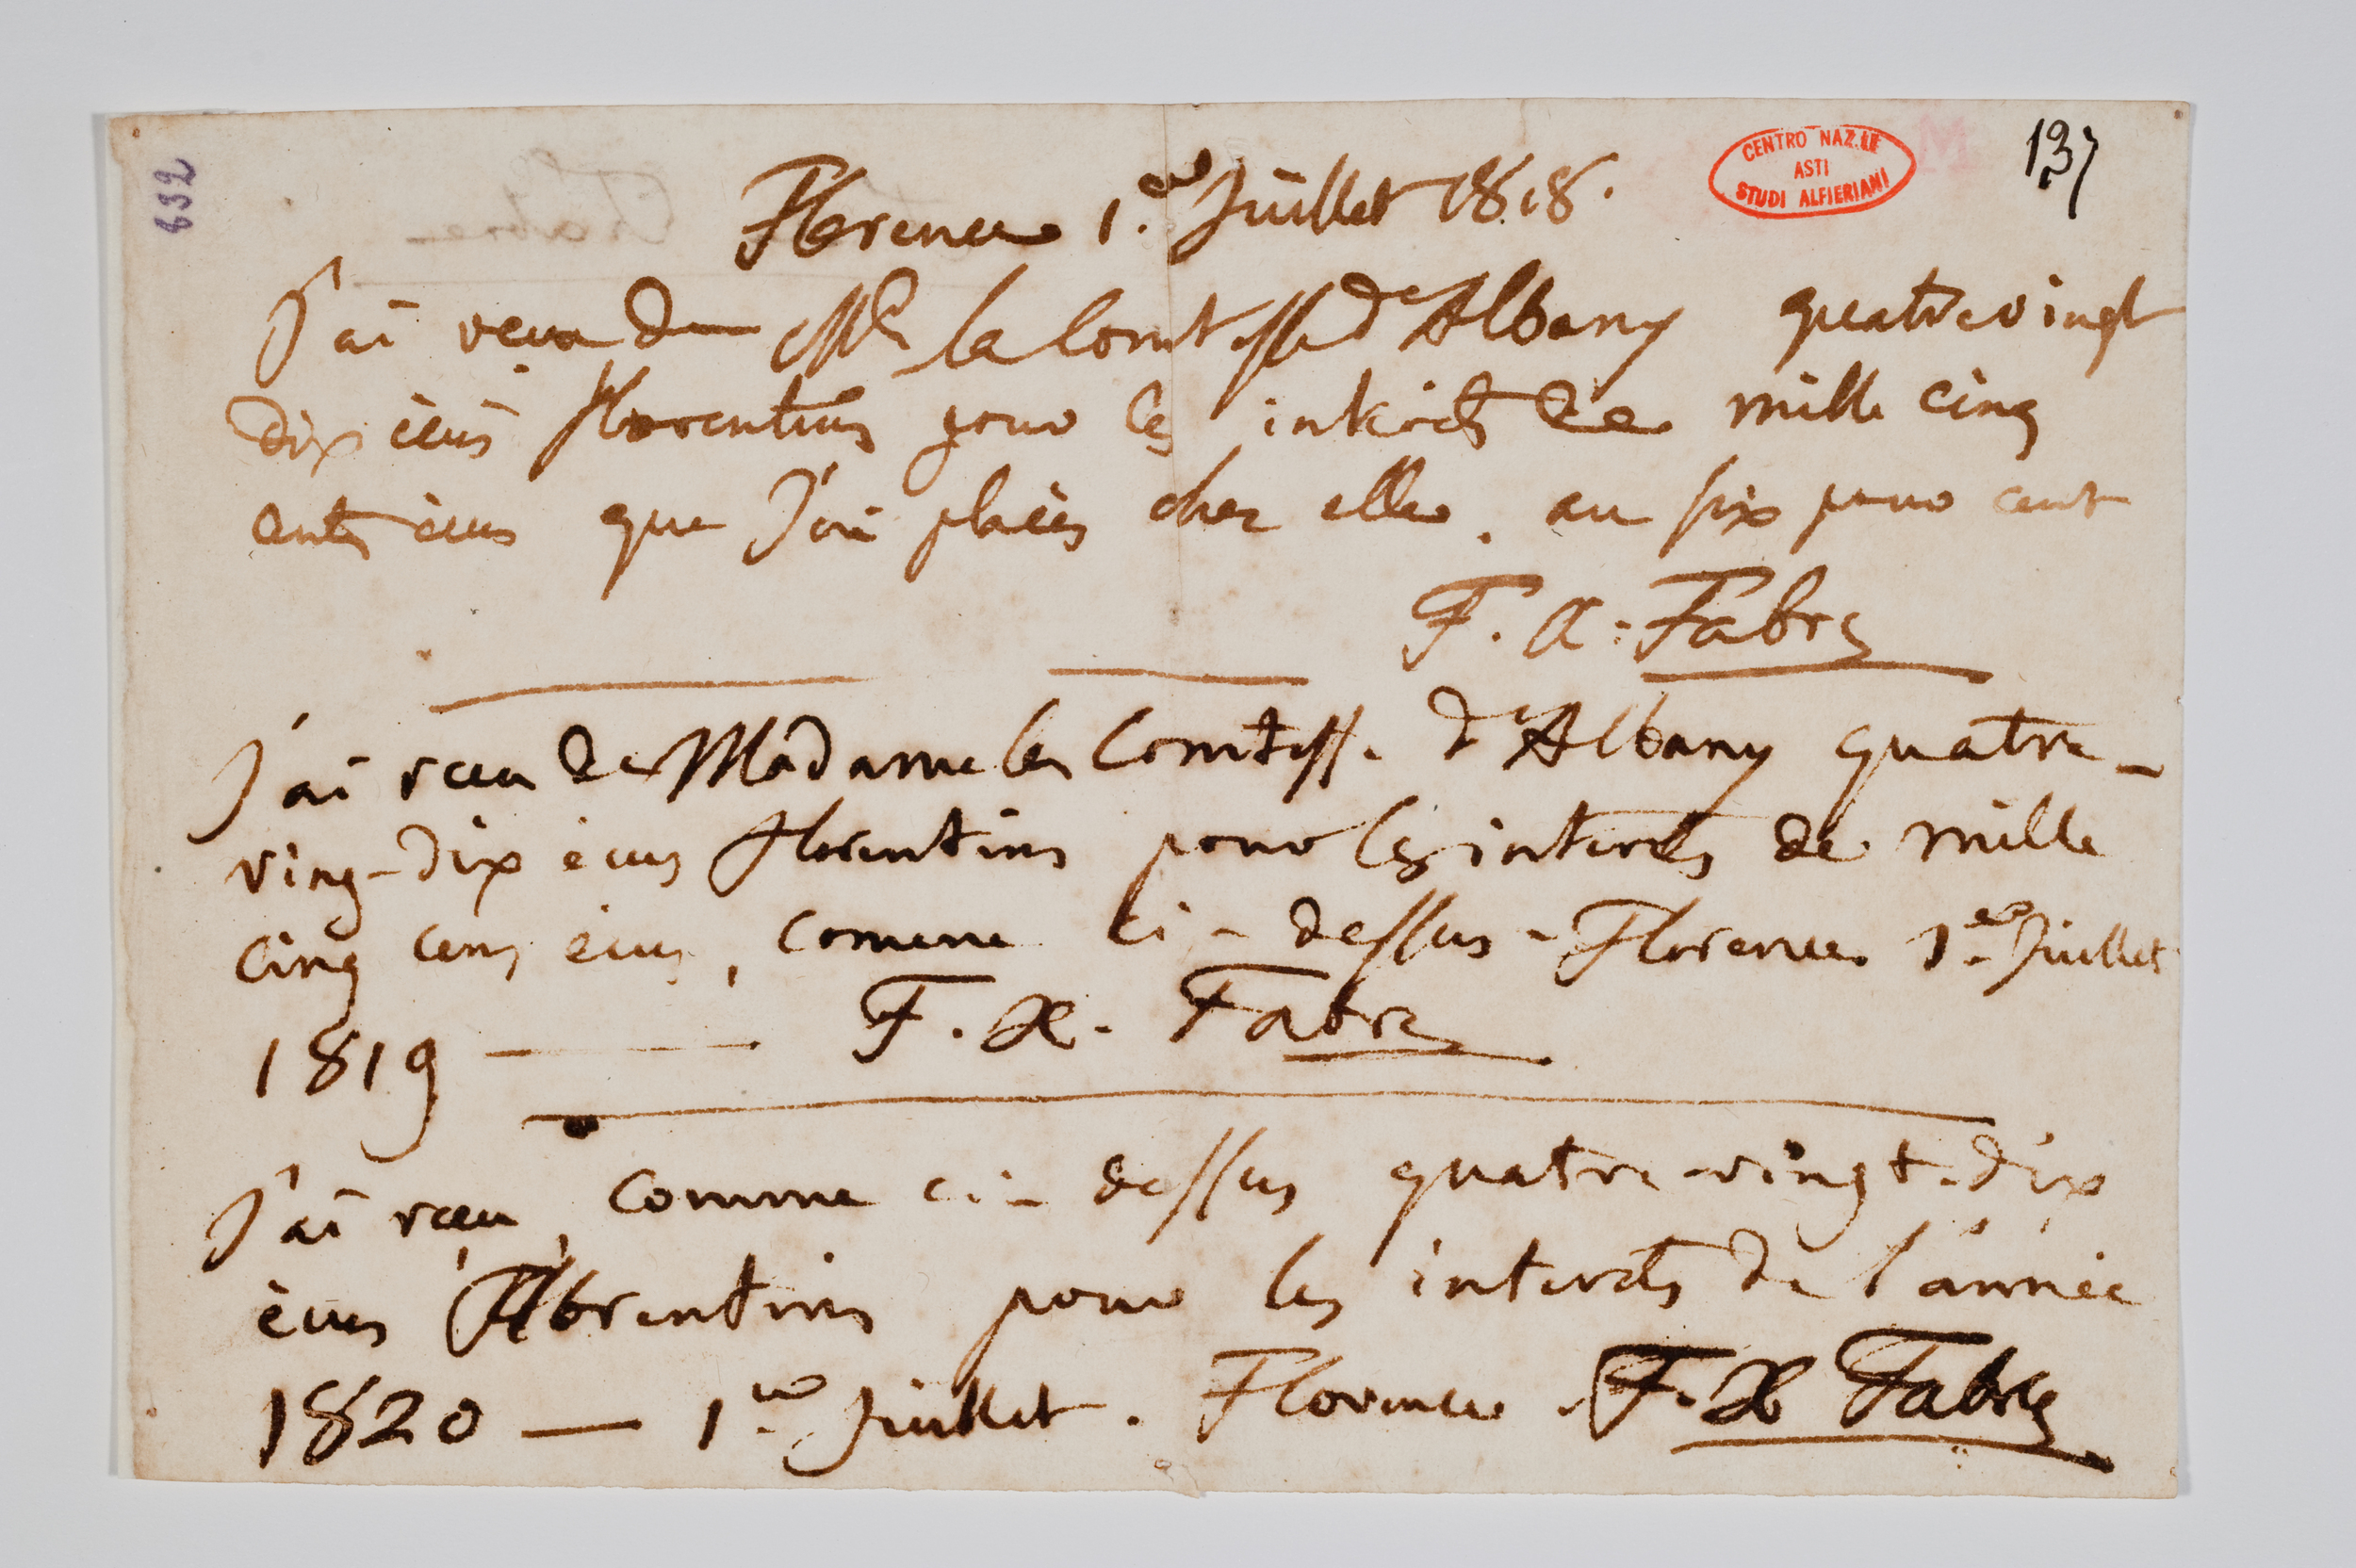 632
CENTRO NAZ.LE
ASTI
STUDI ALFIERIANI
137
Florence 1.er Juillet 1818.
J'ai reçu de Me la Comtesse d'Albany quatrevingt
dix écus florentins pour les interêts de mille cinq
cents écus que J'ai placés chez elle. au six pour cent
F. X. Fabre
J'ai reçu de Madame la Comtesse d'Albany quatre-
ving-dix écus florentins pour les interêts de mille
cinq cens écus, comme ci-dessus - Florence 1.er Juillet
1819 — F. X. Fabre
J'ai reçu, comme ci-dessus quatre-vingt-dix
écus florentins pour les interêts de l'année
1820 — 1.er Juillet. Florence. F. X Fabre